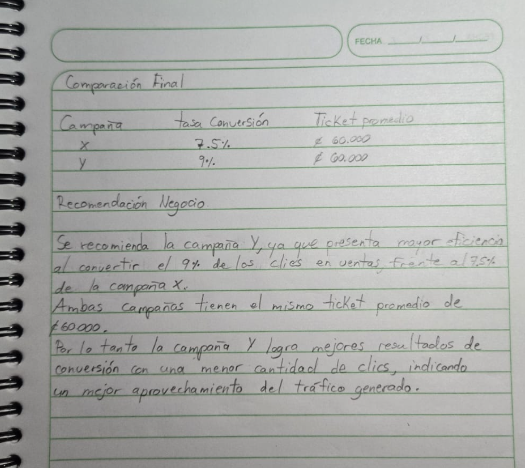 FECHA
Comparación Final
Campaña tasa Conversión Ticket promedio
X 7.5% ₡ 60.000
Y 9% ₡ 60.000
Recomendación Negocio
Se recomienda la campaña Y, ya que presenta mayor eficiencia
al convertir el 9% de los clies en ventas frente al 7,5%
de la campaña X.
Ambas campañas tienen el mismo ticket promedio de
₡60.000.
Por lo tanto la campaña Y logra mejores resultados de
conversión con una menor cantidad de clics, indicando
un mejor aprovechamiento del tráfico generado.